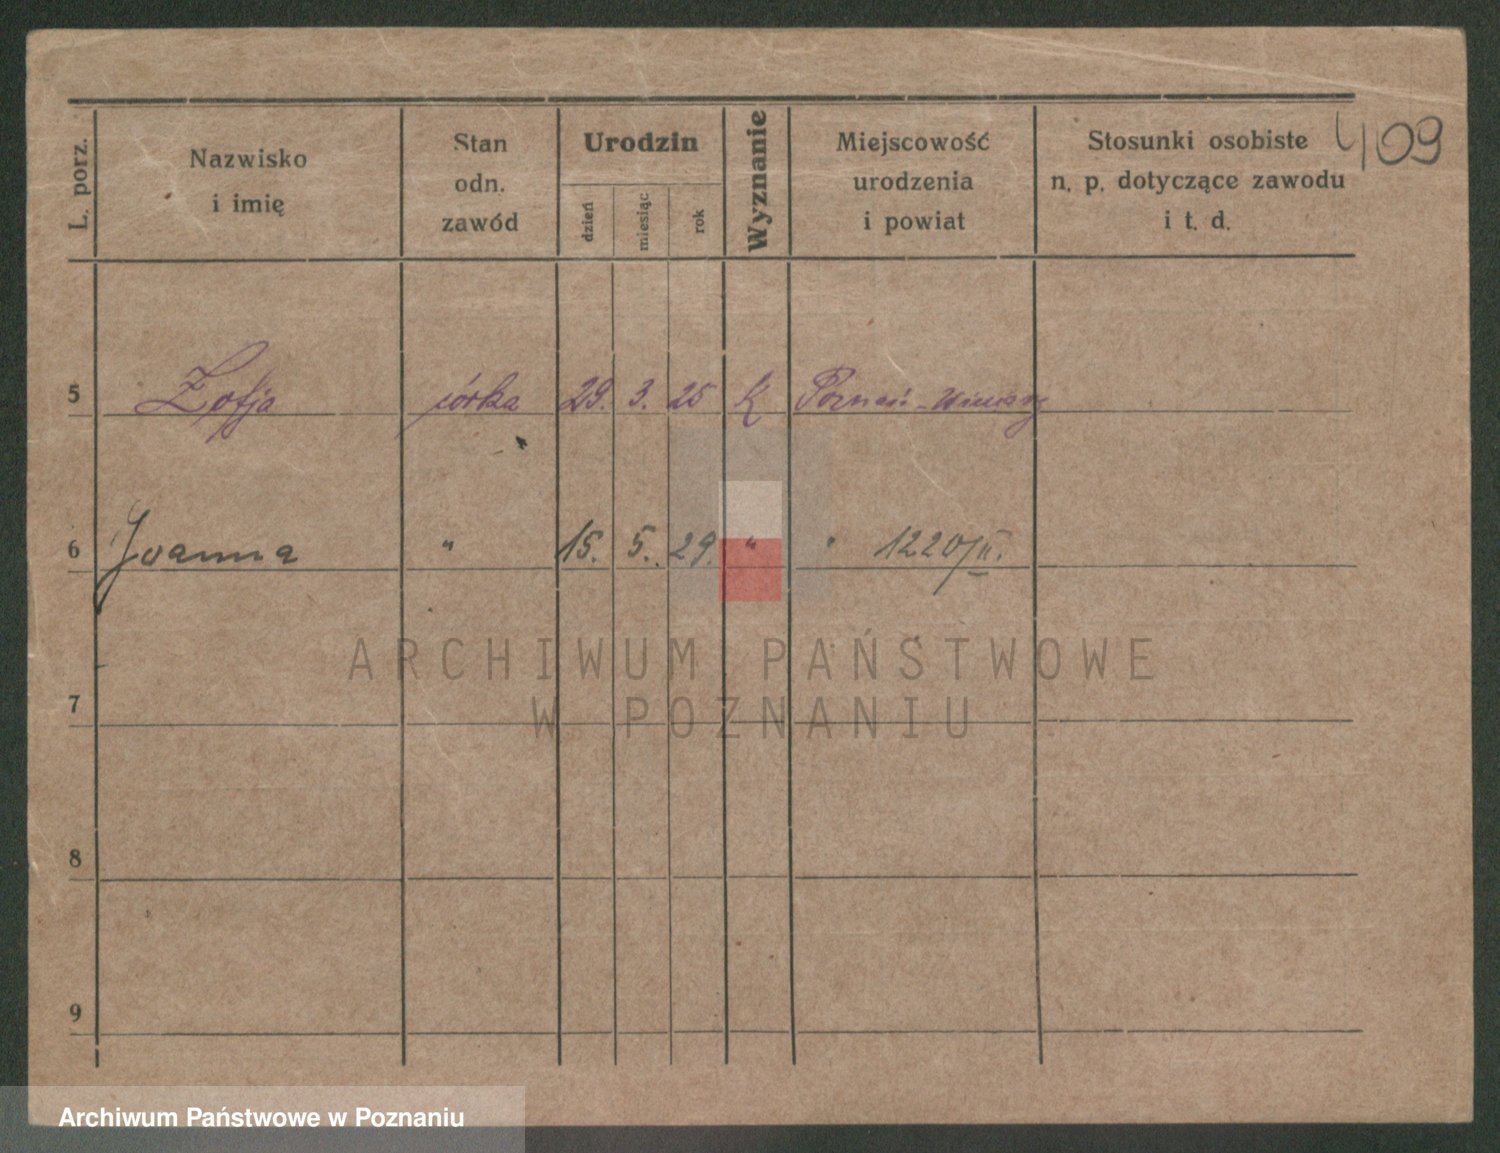 409
L. porz.
Nazwisko
i imię
Stan
odn.
zawód
Urodzin
dzień
miesiąc
rok
Wyznanie
Miejscowość
urodzenia
i powiat
Stosunki osobiste
n. p. dotyczące zawodu
i t. d.
5 Zofja córka 29. 3. 25 K Poznań-Winiary
6 Joanna " 15. 5. 29. " " 1220/II.
ARCHIWUM PAŃSTWOWE
W POZNANIU
7
8
9
Archiwum Państwowe w Poznaniu